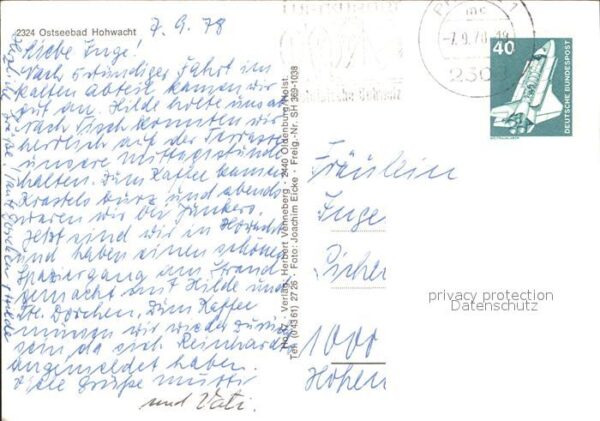 2324 Ostseebad Hohwacht
7.9.78
Liebe Inge!
Nach 5stündiger Fahrt im
kalten Abteil kamen wir
gut an. Hilde holte uns ab
Nach Tisch konnten wir
herrlich auf der Terrasse
unsere Mittagsstunde
halten. Zum Kaffee kamen
kurz und abends
waren wir bei Junkers.
Jetzt sind wir in Hohwacht
und haben einen schönen
Spaziergang am Strand
gemacht mit Hilde und
Dorchen. Zum Kaffee
müssen wir wieder zurück
sein da sich Reinhards
angemeldet haben.
Viele Grüße Mutti
und Vati.
Herzliche Grüße
Hilde
Ho 47 - Verlag: Herbert Venneberg - 2440 Oldenburg/Holst.
Tel. (04361) 27 26 - Foto: Joachim Eicke - Freig.-Nr. SH 369-1038
-7.9.78-19
40
DEUTSCHE BUNDESPOST
Fräulein
Inge
1000
privacy protection
Datenschutz